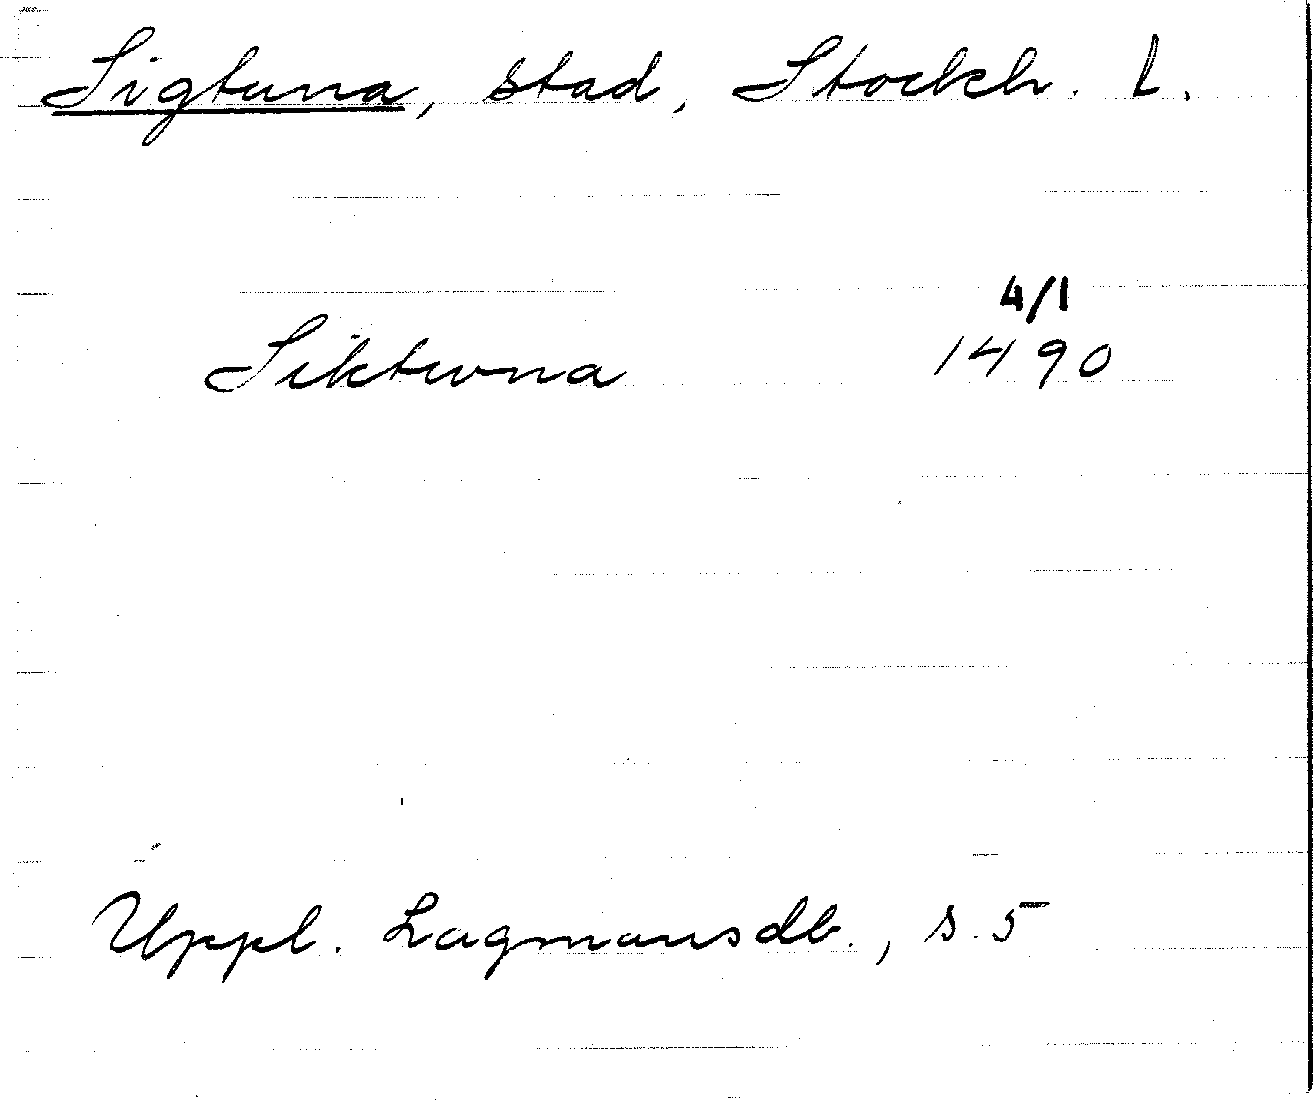 Sigtuna, stad, Stockh. l.
4/1
Siktwna 1490
Uppl. Lagmansdb., s. 5